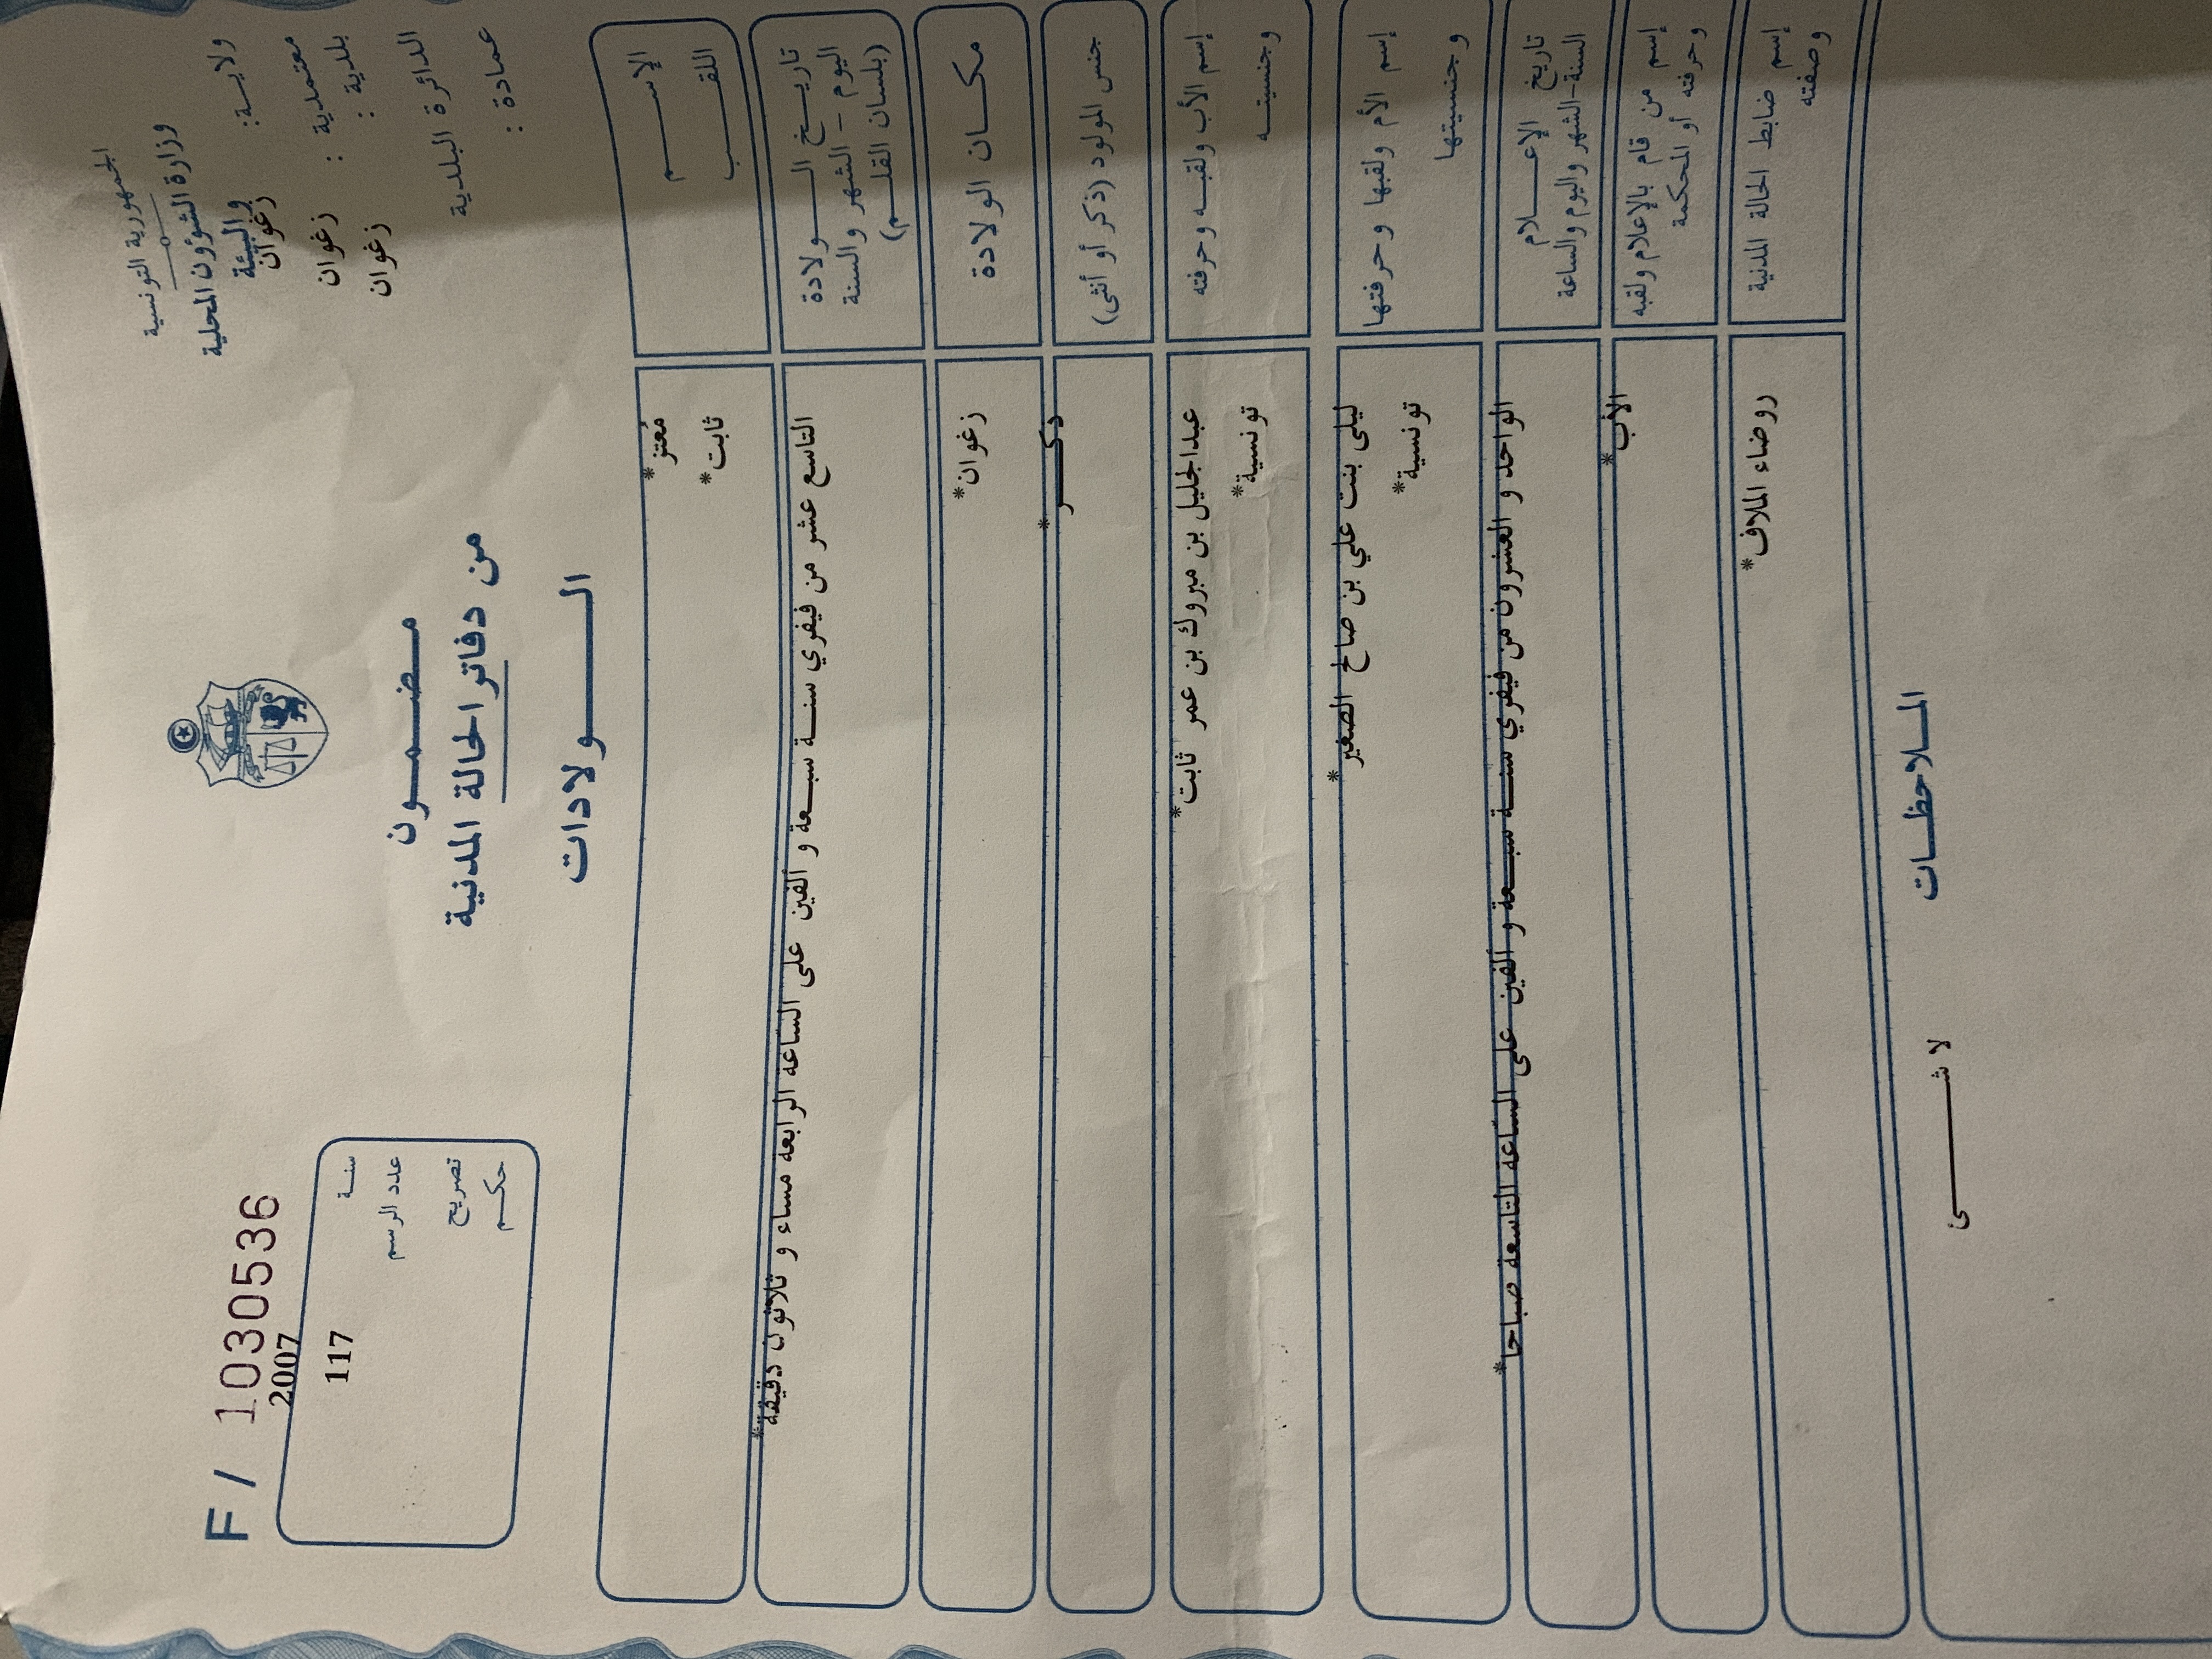 الجمهورية التونسية
وزارة الشؤون المحلية
والبيئة
ولاية: زغوان
معتمدية : زغوان
بلدية : زغوان
الدائرة البلدية
عمادة :
F / 1030536
سنة 2007
عدد الرسم 117
تصريح
حكم
مضمون
من دفاتر الحالة المدنية
الولادات
الإسم مُعتز*
اللقب ثابت*
تاريخ الولادة
اليوم - الشهر والسنة
(بلسان القلم)
التاسع عشر من فيفري سنة سبعة و ألفين على الساعة الرابعة مساء و ثلاثون دقيقة*
مكان الولادة زغوان*
جنس المولود (ذكر أو أنثى) ذكر*
إسم الأب ولقبه وحرفته عبدالجليل بن مبروك بن عمر ثابت*
وجنسيته تونسية*
إسم الأم ولقبها وحرفتها ليلى بنت علي بن صالح الصغير*
وجنسيتها تونسية*
تاريخ الإعلام
السنة-الشهر واليوم والساعة
الواحد و العشرون من فيفري سنة سبعة و ألفين على الساعة التاسعة صباحا*
إسم من قام بالإعلام ولقبه
وحرفته أو المحكمة
الأب*
إسم ضابط الحالة المدنية
وصفته
روضاء الملاف*
الملاحظات
لا شئ